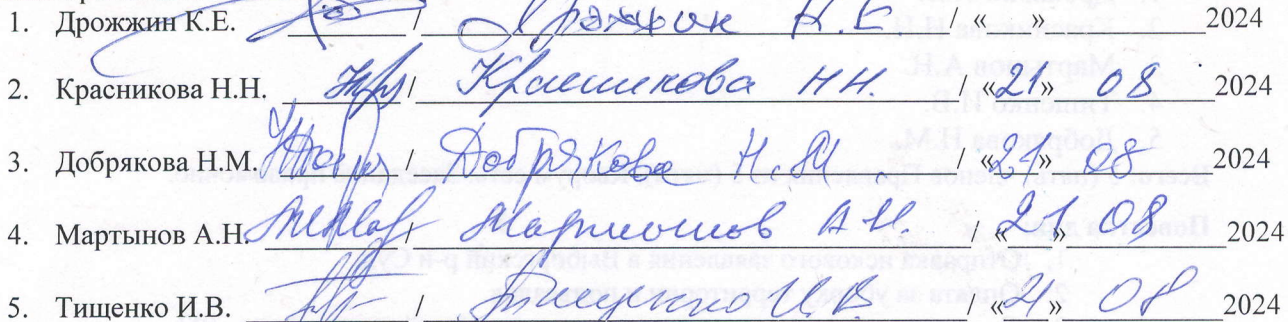 1. Дрожжин К.Е. / Дрожжин К.Е / « » 2024
2. Красникова Н.Н. / Красникова Н.Н. / «21» 08 2024
3. Добрякова Н.М. / Добрякова Н.М / «21» 08 2024
4. Мартынов А.Н. / Мартынов А.Н. / «21» 08 2024
5. Тищенко И.В. / Тищенко И.В / «21» 08 2024